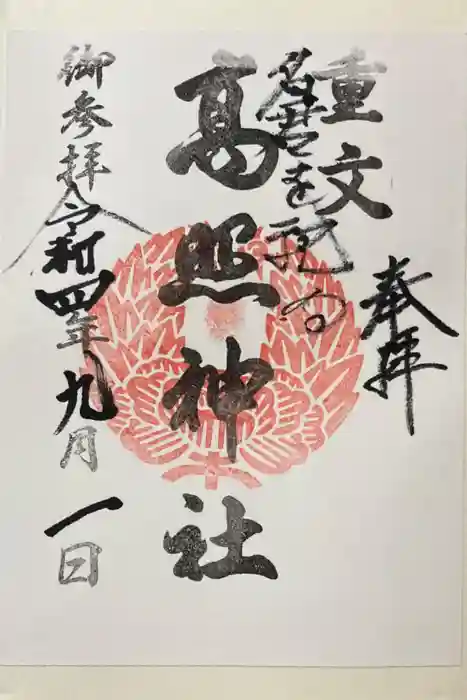 奉拝
重文
名君を祀る
高照神社
御参拝
令和四年九月一日